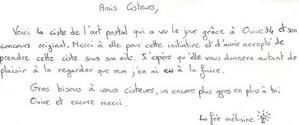 Amis Cisteurs,
Voici la ciste de l'art postal qui a vu le jour grâce à Ovive34 et son
concours original. Merci à elle pour cette initiative et d'avoir accepté de
prendre cette ciste sous son aile. J'espère qu'elle vous donnera autant de
plaisir à la regarder que moi j'en ai eu à la faire.
Gros bisous à vous cisteurs, un encore plus gros en plus à toi
Ovive et encore merci.
La fée mélusine